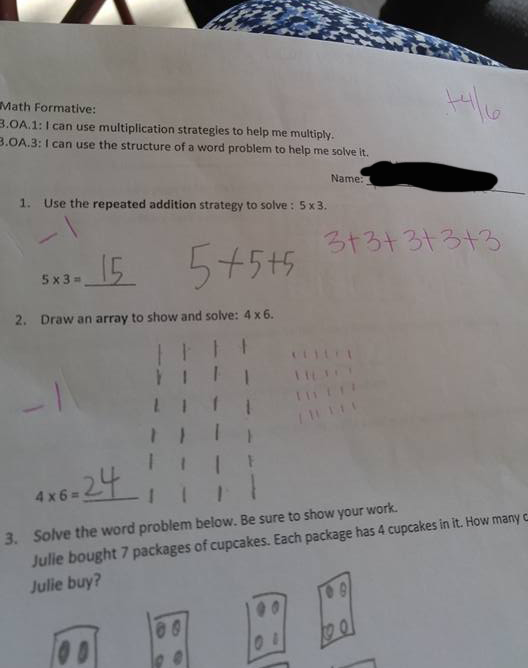 +4/6
Math Formative:
3.OA.1: I can use multiplication strategies to help me multiply.
3.OA.3: I can use the structure of a word problem to help me solve it.
Name:
1. Use the repeated addition strategy to solve : 5 x 3.
-1
3+3+3+3+3
5 x 3 = 15 5+5+5
2. Draw an array to show and solve: 4 x 6.
-1
4 x 6 = 24
3. Solve the word problem below. Be sure to show your work.
Julie bought 7 packages of cupcakes. Each package has 4 cupcakes in it. How many
Julie buy?